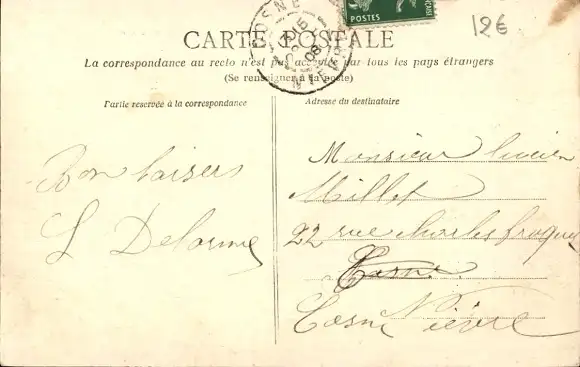 126
POSTES
COSNE
08
CARTE POSTALE
La correspondance au recto n'est pas acceptée par tous les pays étrangers
(Se renseigner à la poste)
Partie réservée à la correspondance
Adresse du destinataire
Bon baisers
L Delorme
Monsieur lucien
Millet
22 rue charles froquet
Cosne
Cosne Nièvre